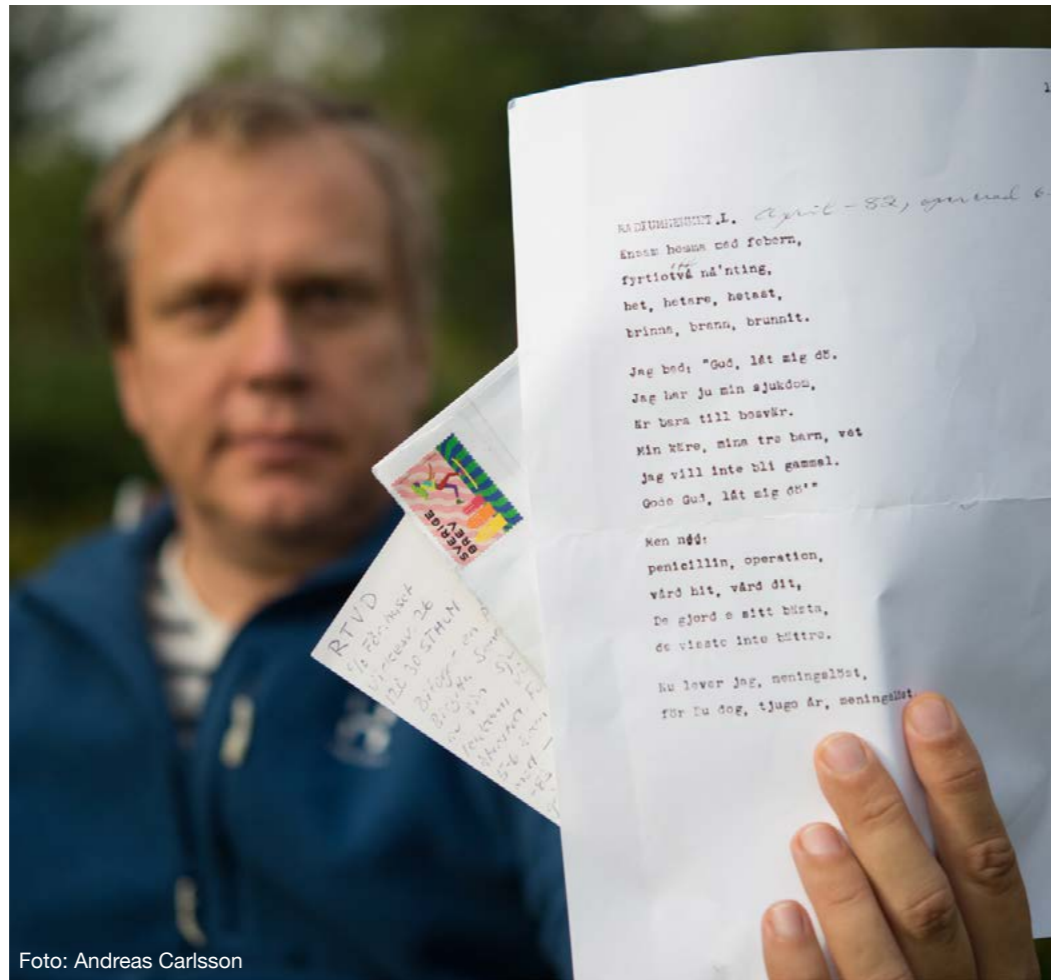 1
RADIUMHEMMET.I. April - 82, opererad 6.
Ensam hemma med febern,
fyrtiotvå nå'nting,
het, hetare, hetast,
brinna, brann, brunnit.
Jag bad: "Gud, låt mig dö.
Jag har ju min sjukdom,
Är bara till besvär.
Min käre, mina tre barn, vet
jag vill inte bli gammal.
Gode Gud, låt mig dö'"
Men nej:
penicillin, operation,
vård hit, vård dit,
De gjord e sitt bästa,
de visste inte bättre.
Nu lever jag, meningslöst,
för Du dog, tjugo år, meningslöst.
SVERIGE
BREV
RTVD
c/o
26
30 STHLM
Foto: Andreas Carlsson